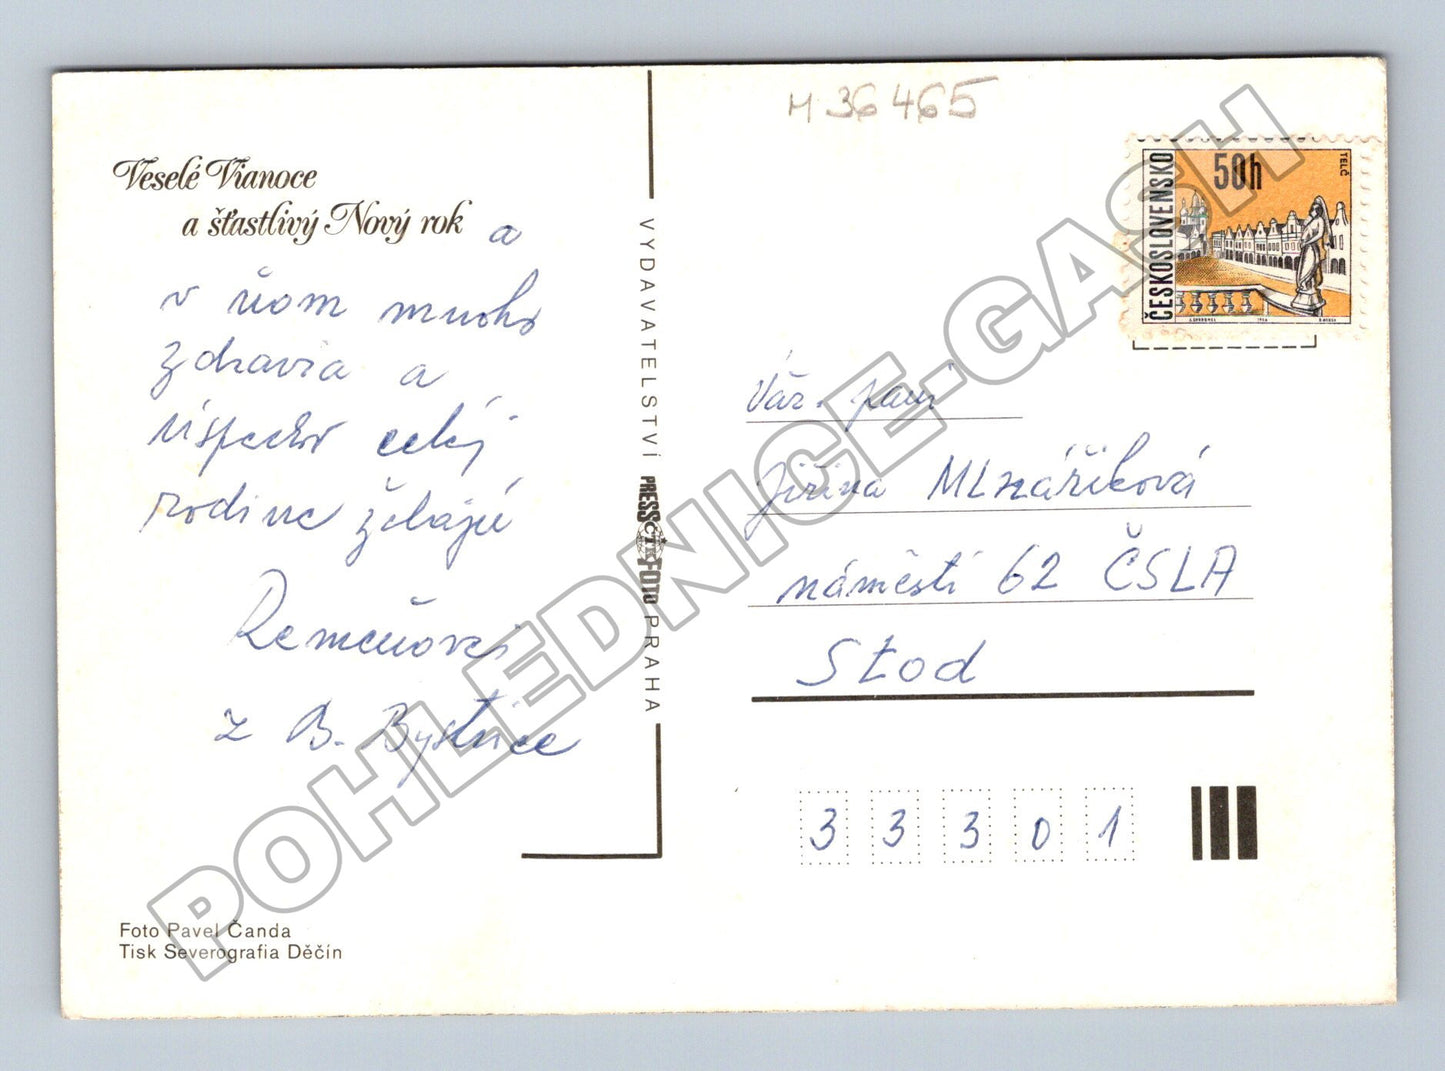 M 36 465
Veselé Vianoce
a šťastlivý Nový rok a
v ňom mnoho
zdravia a
úspechov celej
rodine želajú
Remeňovci
z B. Bystrice
Foto Pavel Čanda
Tisk Severografia Děčín
VYDAVATELSTVÍ PRESSFOTO PRAHA
ČTK
ČESKOSLOVENSKO
50h
TELČ
Váž. paní
Jiřina Mlnáříková
náměstí 62 ČSLA
Stod
3 3 3 0 1
POHLEDNICE-GASH